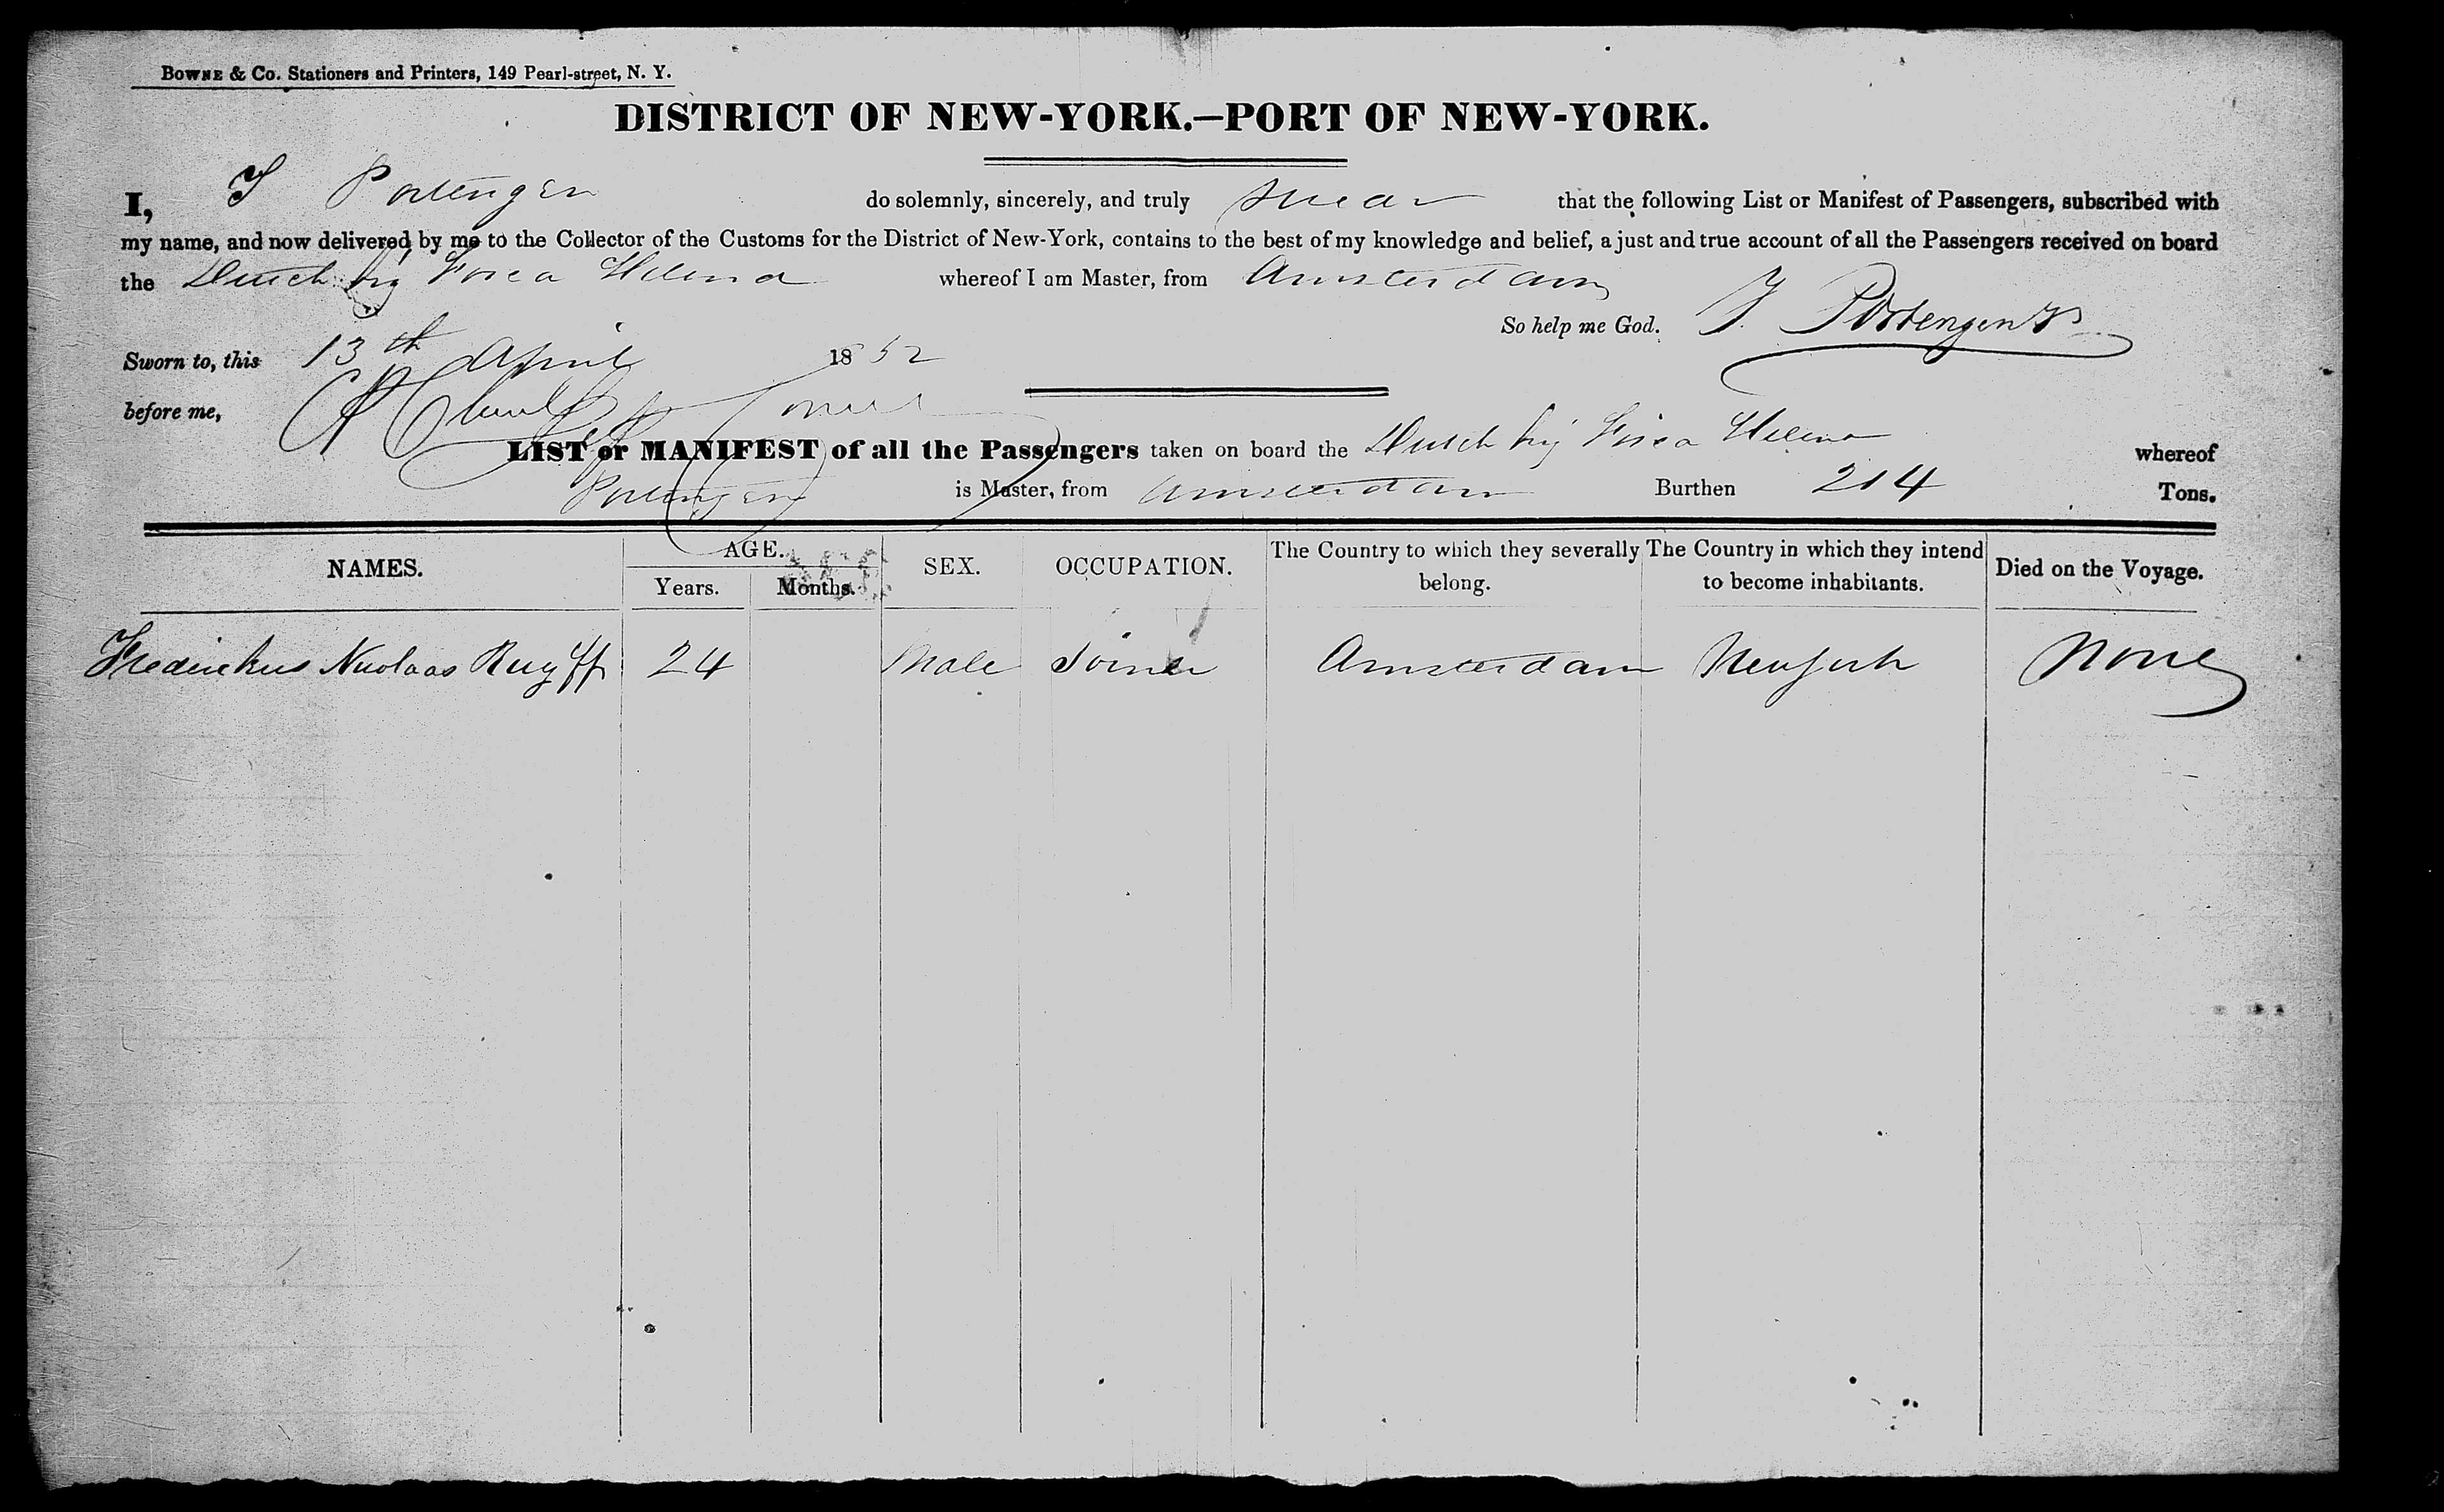 BOWNE & Co. Stationers and Printers, 149 Pearl-street, N. Y.
DISTRICT OF NEW-YORK.—PORT OF NEW-YORK.
I, J Portengen do solemnly, sincerely, and truly swear that the following List or Manifest of Passengers, subscribed with
my name, and now delivered by me to the Collector of the Customs for the District of New-York, contains to the best of my knowledge and belief, a just and true account of all the Passengers received on board
the Dutch brig Helena whereof I am Master, from Amsterdam
So help me God. J. Portengen
Sworn to, this 13th April 1852
before me,
LIST or MANIFEST of all the Passengers taken on board the Dutch brig Helena whereof
Portengen is Master, from Amsterdam Burthen 214 Tons.
NAMES. AGE. SEX. OCCUPATION. The Country to which they severally belong. The Country in which they intend to become inhabitants. Died on the Voyage.
Years. Months.
Frederikus Nicolaas 24 Male Joiner Amsterdam New York None